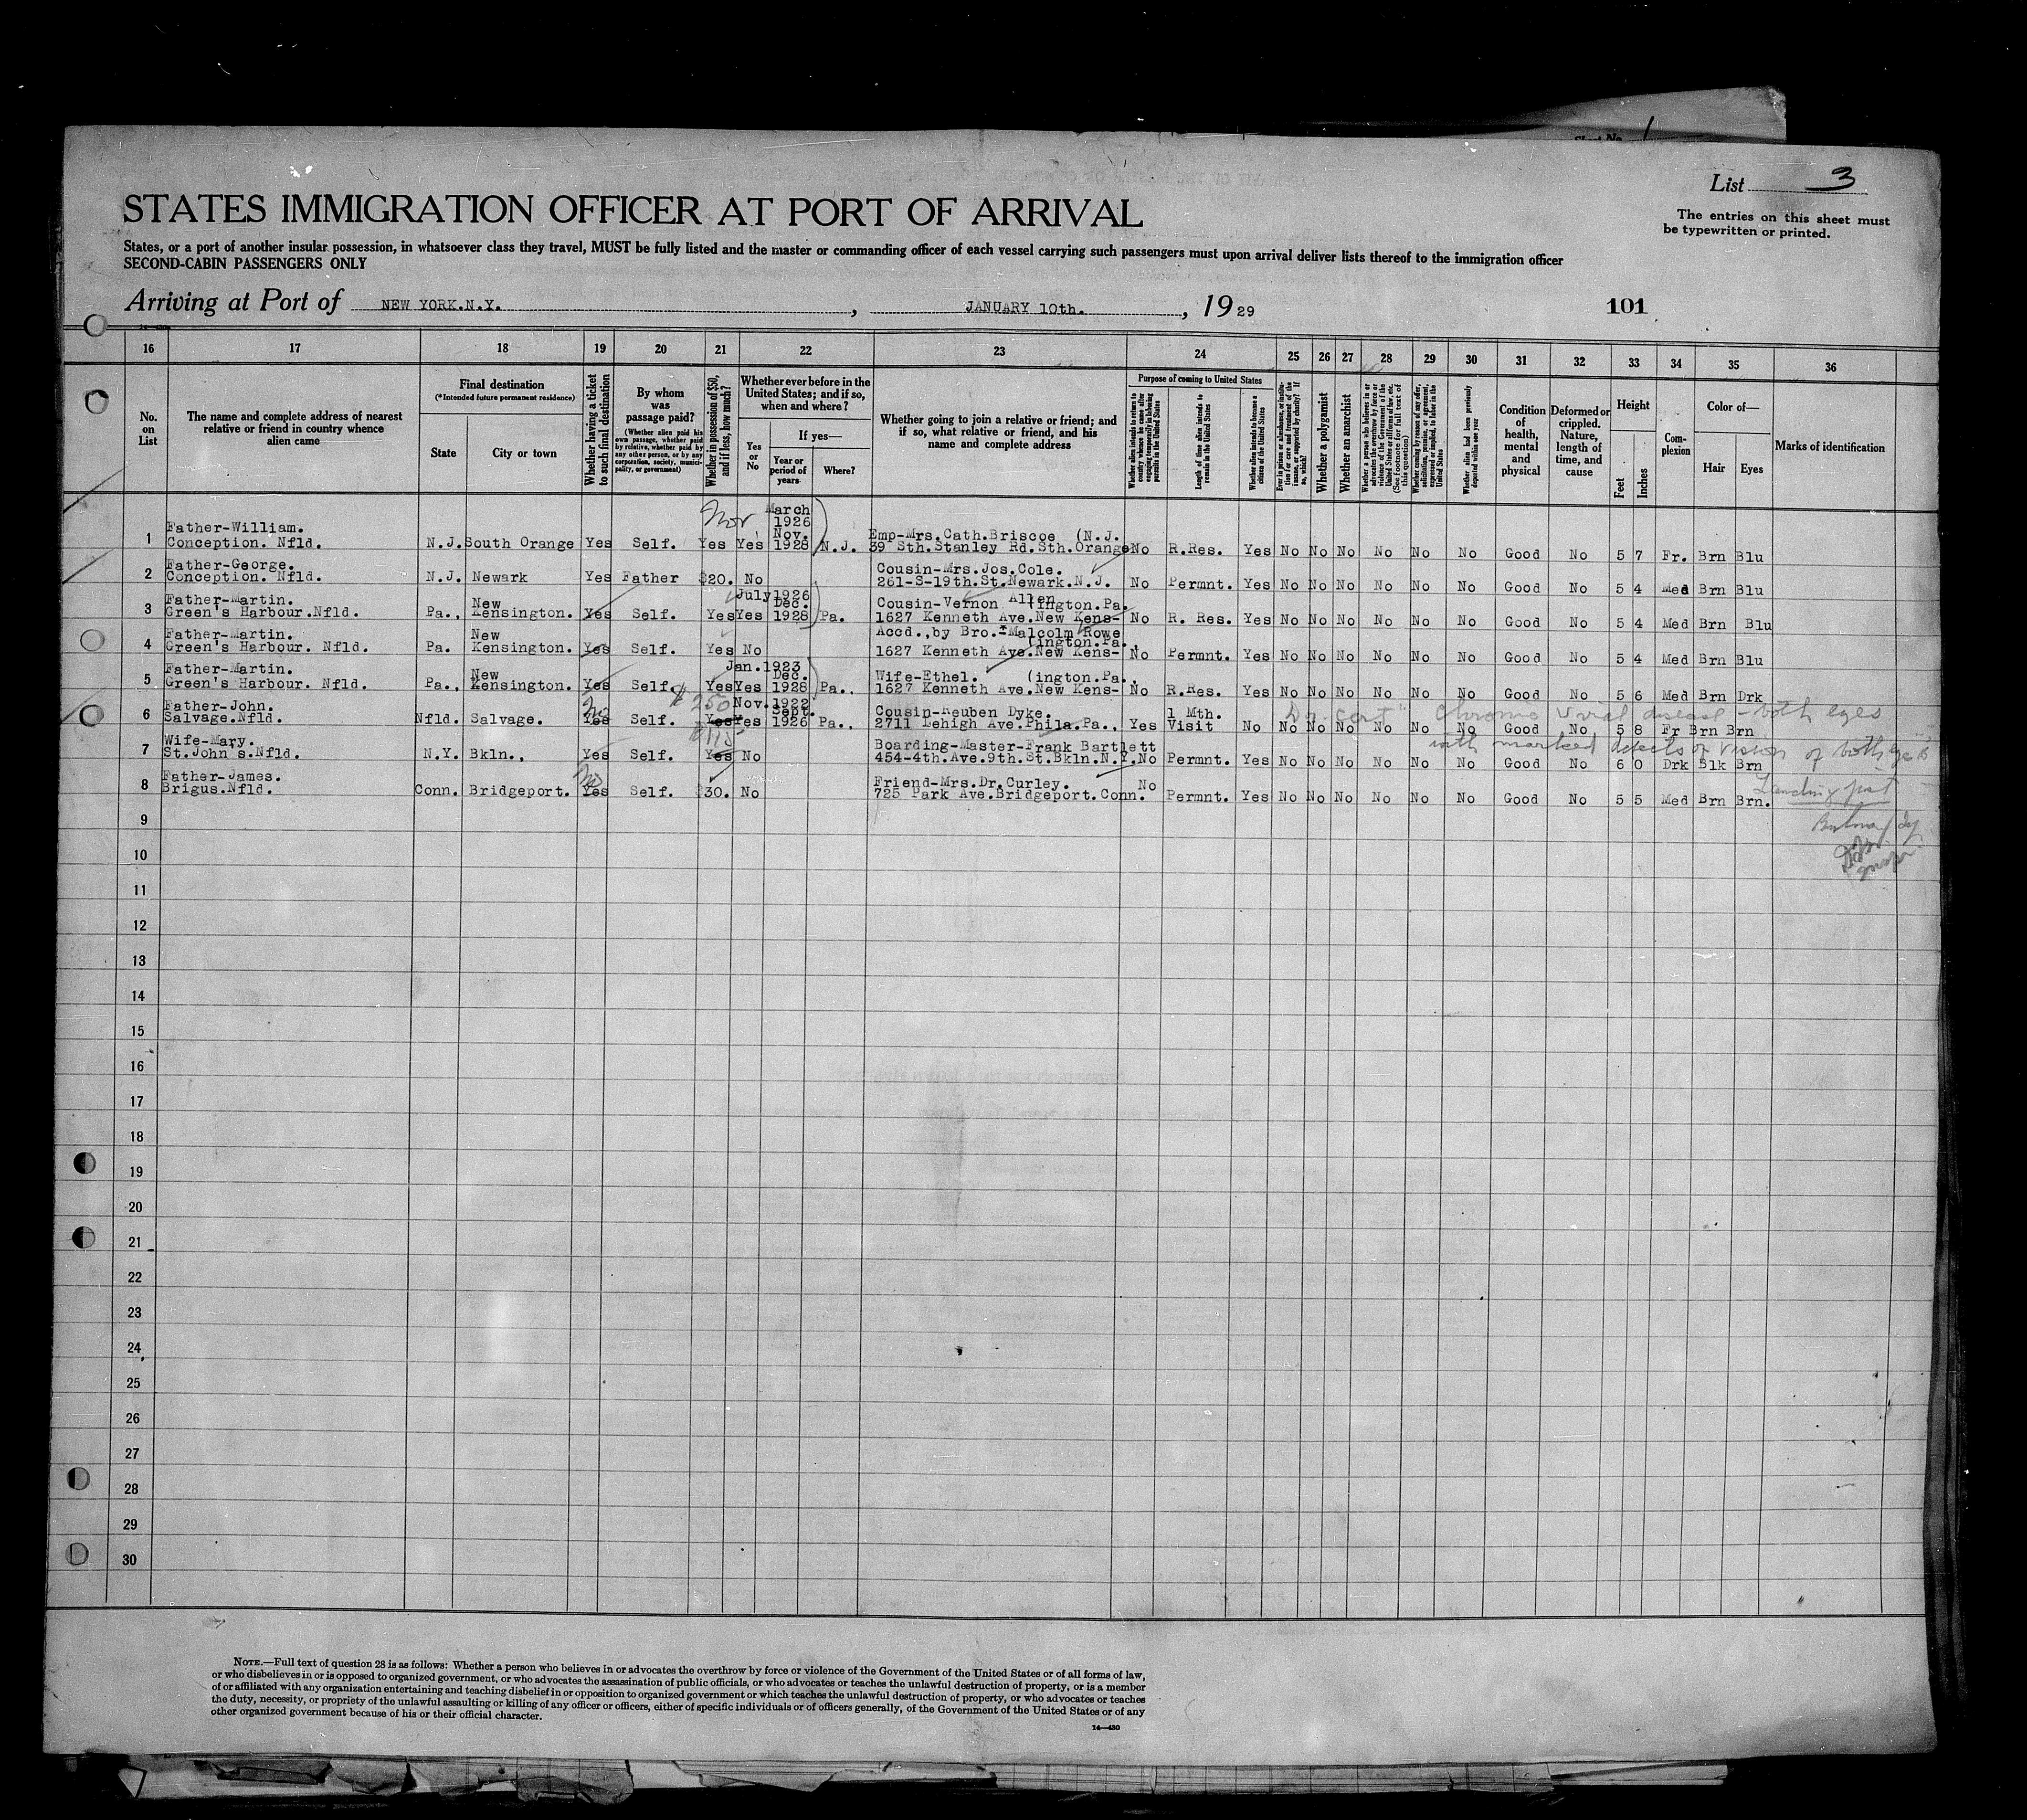 List 3
The entries on this sheet must
be typewritten or printed.
STATES IMMIGRATION OFFICER AT PORT OF ARRIVAL
States, or a port of another insular possession, in whatsoever class they travel, MUST be fully listed and the master or commanding officer of each vessel carrying such passengers must upon arrival deliver lists thereof to the immigration officer
SECOND-CABIN PASSENGERS ONLY
Arriving at Port of NEW YORK.N.Y. , JANUARY 10th. , 19 29 101
16 17 18 19 20 21 22 23 24 25 26 27 28 29 30 31 32 33 34 35 36
No. on List
The name and complete address of nearest relative or friend in country whence alien came
Final destination
(*Intended future permanent residence)
State City or town
Whether having a ticket to such final destination
By whom was passage paid?
(Whether alien paid his own passage, whether paid by relative, whether paid by any other person, or by any corporation, society, municipality, or government)
Whether in possession of $50, and if less, how much?
Whether ever before in the United States; and if so, when and where?
Yes or No
If yes—
Year or period of years Where?
Whether going to join a relative or friend; and if so, what relative or friend, and his name and complete address
Purpose of coming to United States
Length of time alien intends to remain in the United States
Whether alien intends to become a citizen of the United States
Whether a polygamist
Whether an anarchist
Condition of health, mental and physical
Deformed or crippled. Nature, length of time, and cause
Height
Feet Inches
Complexion
Color of—
Hair Eyes
Marks of identification
1 Father-William. Conception. Nfld. N.J. South Orange Yes Self. Yes Yes March 1926 Nov. 1928 N.J. Emp-Mrs.Cath.Briscoe (N.J. 39 Sth.Stanley Rd.Sth.Orange No R.Res. Yes No No No No No No Good No 5 7 Fr. Brn Blu
2 Father-George. Conception. Nfld. N.J. Newark Yes Father $20. No Cousin-Mrs.Jos.Cole. 261-S-19th.St.Newark.N.J. No Permnt. Yes No No No No No No Good No 5 4 Med Brn Blu
3 Father-Martin. Green's Harbour.Nfld. Pa., New Kensington. Yes Self. Yes Yes July 1926 Dec. 1928 Pa. Cousin-Vernon Allen (ington.Pa. 1627 Kenneth Ave.New Kens- No R. Res. Yes No No No No No No Good No 5 4 Med Brn Blu
4 Father-Martin. Green's Harbour. Nfld. Pa. New Kensington. Yes Self. Yes No Accd.,by Bro.-Malcolm Rowe (ington.Pa., 1627 Kenneth Ave.New Kens- No Permnt. Yes No No No No No No Good No 5 4 Med Brn Blu
5 Father-Martin. Green's Harbour. Nfld. Pa., New Kensington. Yes Self. Yes Yes Jan.1923 Dec. 1928 Pa., Wife-Ethel. (ington.Pa., 1627 Kenneth Ave.New Kens- No R.Res. Yes No No No No No No Good No 5 6 Med Brn Drk
6 Father-John. Salvage.Nfld. Nfld. Salvage. No Yes Self. $250 Yes Yes Nov.1922 Sept. 1926 Pa., Cousin-Reuben Dyke. 2711 Lehigh Ave.Phila.Pa., Yes 1 Mth. Visit No No No No No No No Good No 5 8 Fr Brn Brn
Dr. cert" chronic disease - both eyes
with marked defects of vision of both eyes
7 Wife-Mary. St.John's.Nfld. N.Y. Bkln., Yes Self. $115 Yes No Boarding-Master-Frank Bartlett 454-4th.Ave.9th.St.Bkln.N.Y. No Permnt. Yes No No No No No No Good No 6 0 Drk Blk Brn
8 Father-James. Brigus.Nfld. Conn. Bridgeport. No Yes Self. $30. No Friend-Mrs.Dr.Curley. 725 Park Ave.Bridgeport.Conn. No Permnt. Yes No No No No No No Good No 5 5 Med Brn Brn.
Landing
9
10
11
12
13
14
15
16
17
18
19
20
21
22
23
24
25
26
27
28
29
30
NOTE.—Full text of question 28 is as follows: Whether a person who believes in or advocates the overthrow by force or violence of the Government of the United States or of all forms of law,
or who disbelieves in or is opposed to organized government, or who advocates the assassination of public officials, or who advocates or teaches the unlawful destruction of property, or is a member
of or affiliated with any organization entertaining and teaching disbelief in or opposition to organized government or which teaches the unlawful destruction of property, or who advocates or teaches
the duty, necessity, or propriety of the unlawful assaulting or killing of any officer or officers, either of specific individuals or of officers generally, of the Government of the United States or of any
other organized government because of his or their official character.
14—430